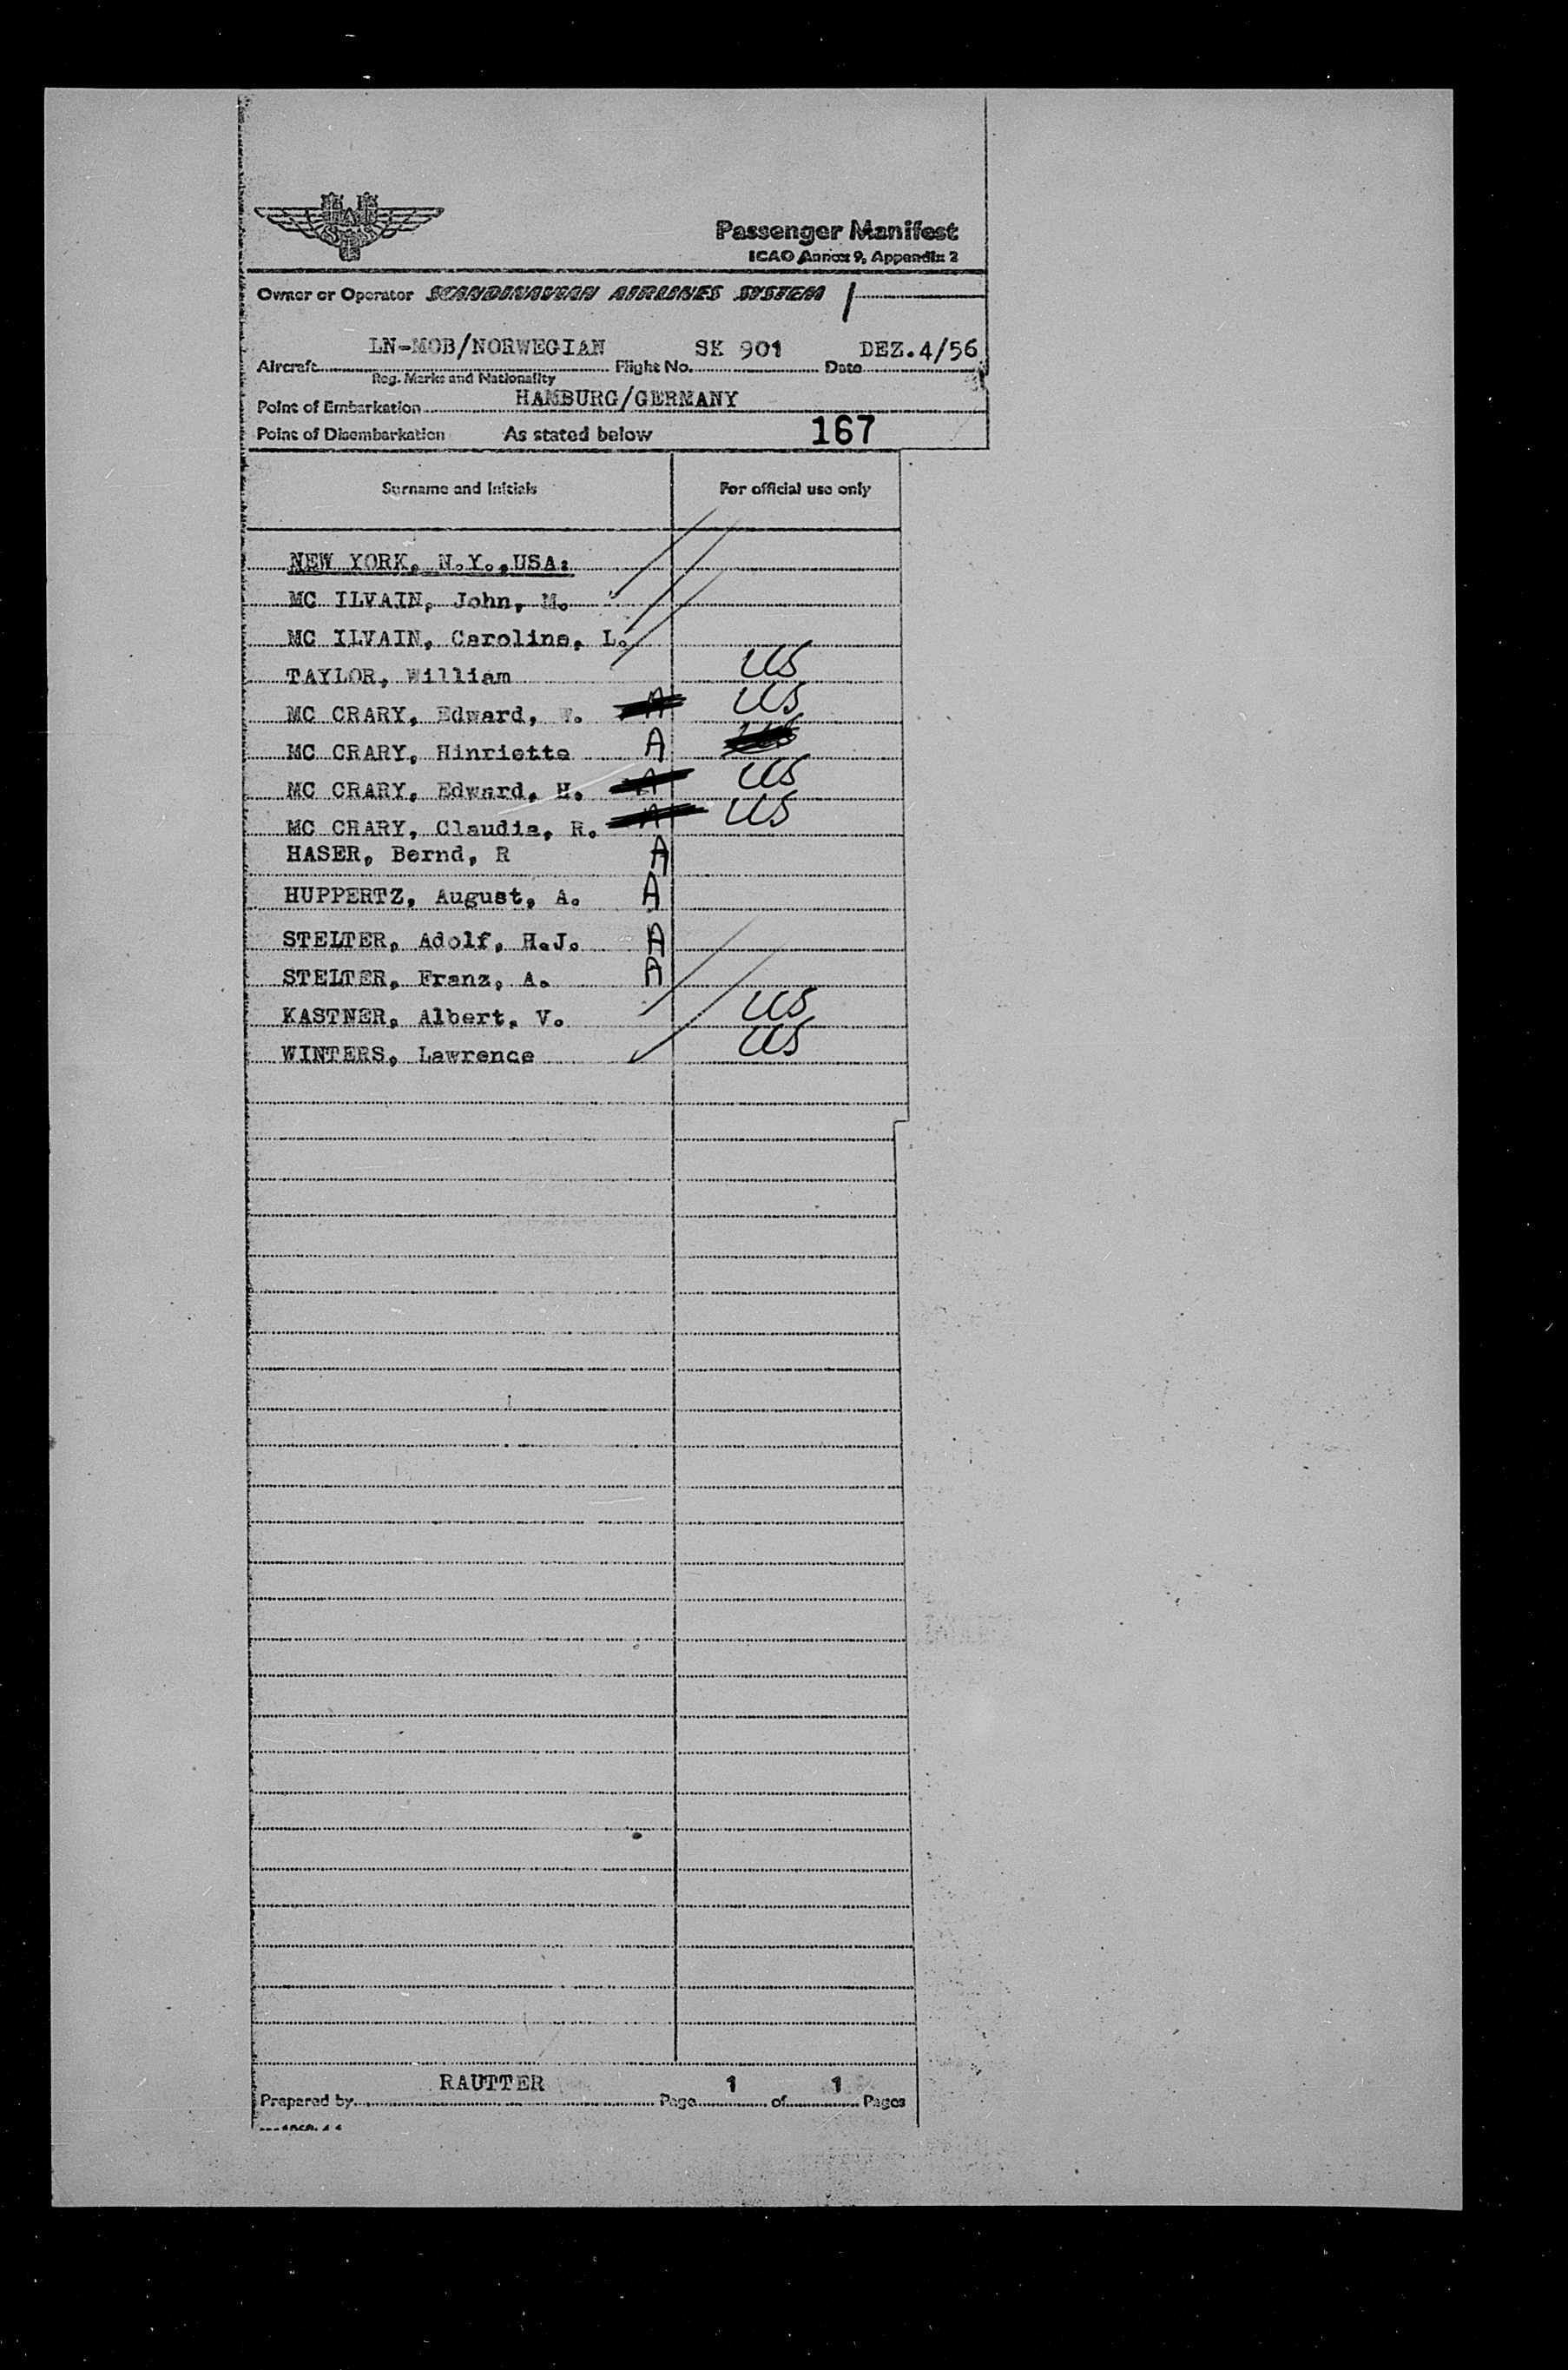 SAS
Passenger Manifest
ICAO Annex 9, Appendix 2
Owner or Operator SCANDINAVIAN AIRLINES SYSTEM
Aircraft LN-MOB/NORWEGIAN Flight No. SK 901 Date DEZ.4/56
Reg. Marks and Nationality
Point of Embarkation HAMBURG/GERMANY
Point of Disembarkation As stated below 167
Surname and Initials For official use only
NEW YORK, N.Y.,USA:
MC ILVAIN, John, M.
MC ILVAIN, Caroline, L.
TAYLOR, William US
MC CRARY, Edward, A US
MC CRARY, Hinriette A US
MC CRARY, Edward, H. A US
MC CRARY, Claudia, R. A US
HASER, Bernd, R A
HUPPERTZ, August, A. A
STELTER, Adolf, H.J. A
STELTER, Franz, A. A
KASTNER, Albert, V. US
WINTERS, Lawrence US
Prepared by RAUTTER Page 1 of 1 Pages